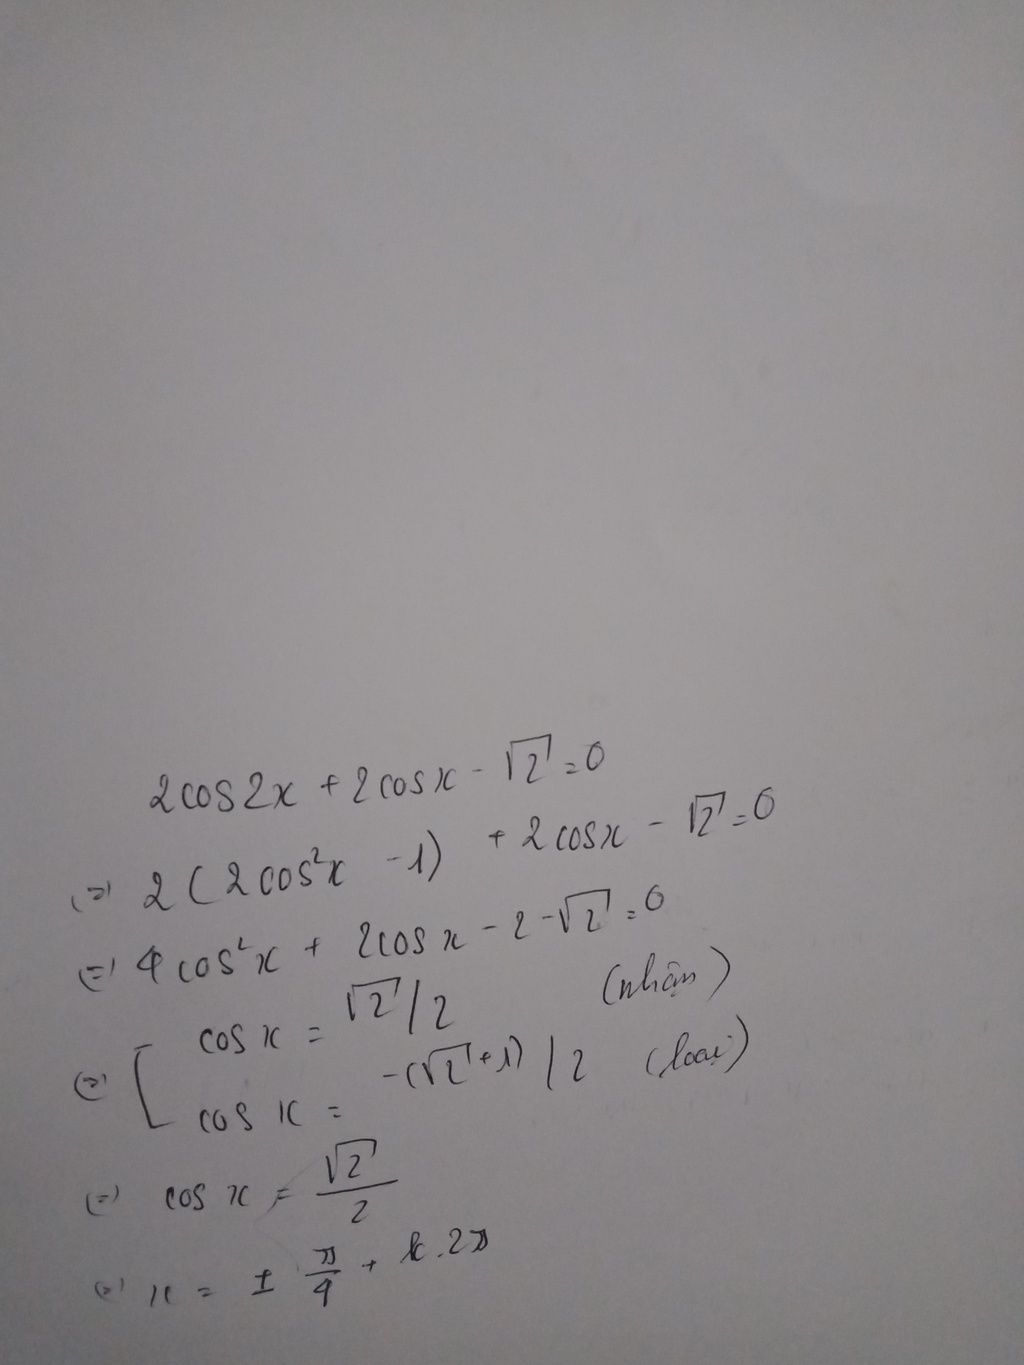 2cos2x + 2cosx - √2 = 0
(=) 2(2cos²x - 1) + 2cosx - √2 = 0
(=) 4cos²x + 2cosx - 2 - √2 = 0
(=) [ cos x = √2/2 (nhận)
cos x = -(√2+1)/2 (loại)
(=) cos x = √2/2
(=) x = ± π/4 + k.2π